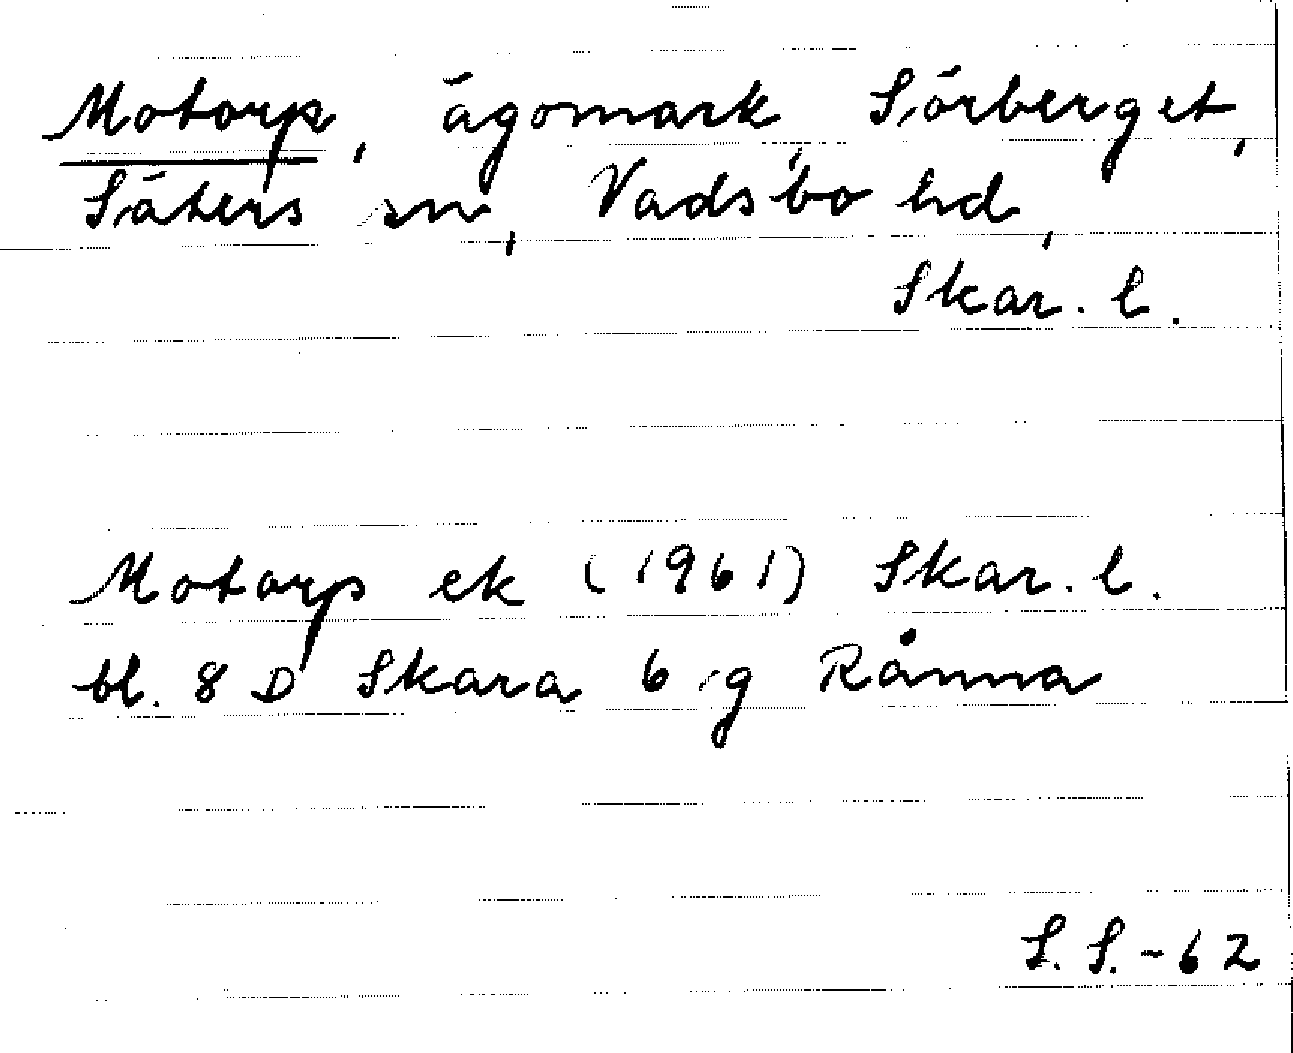 Motorp, ägomark, Sörberget,
Säters sn, Vadsbo hd,
Skar. l.
Motorp ek (1961) Skar. l.
bl. 8 D Skara 6 g Rånna
S. S. -62